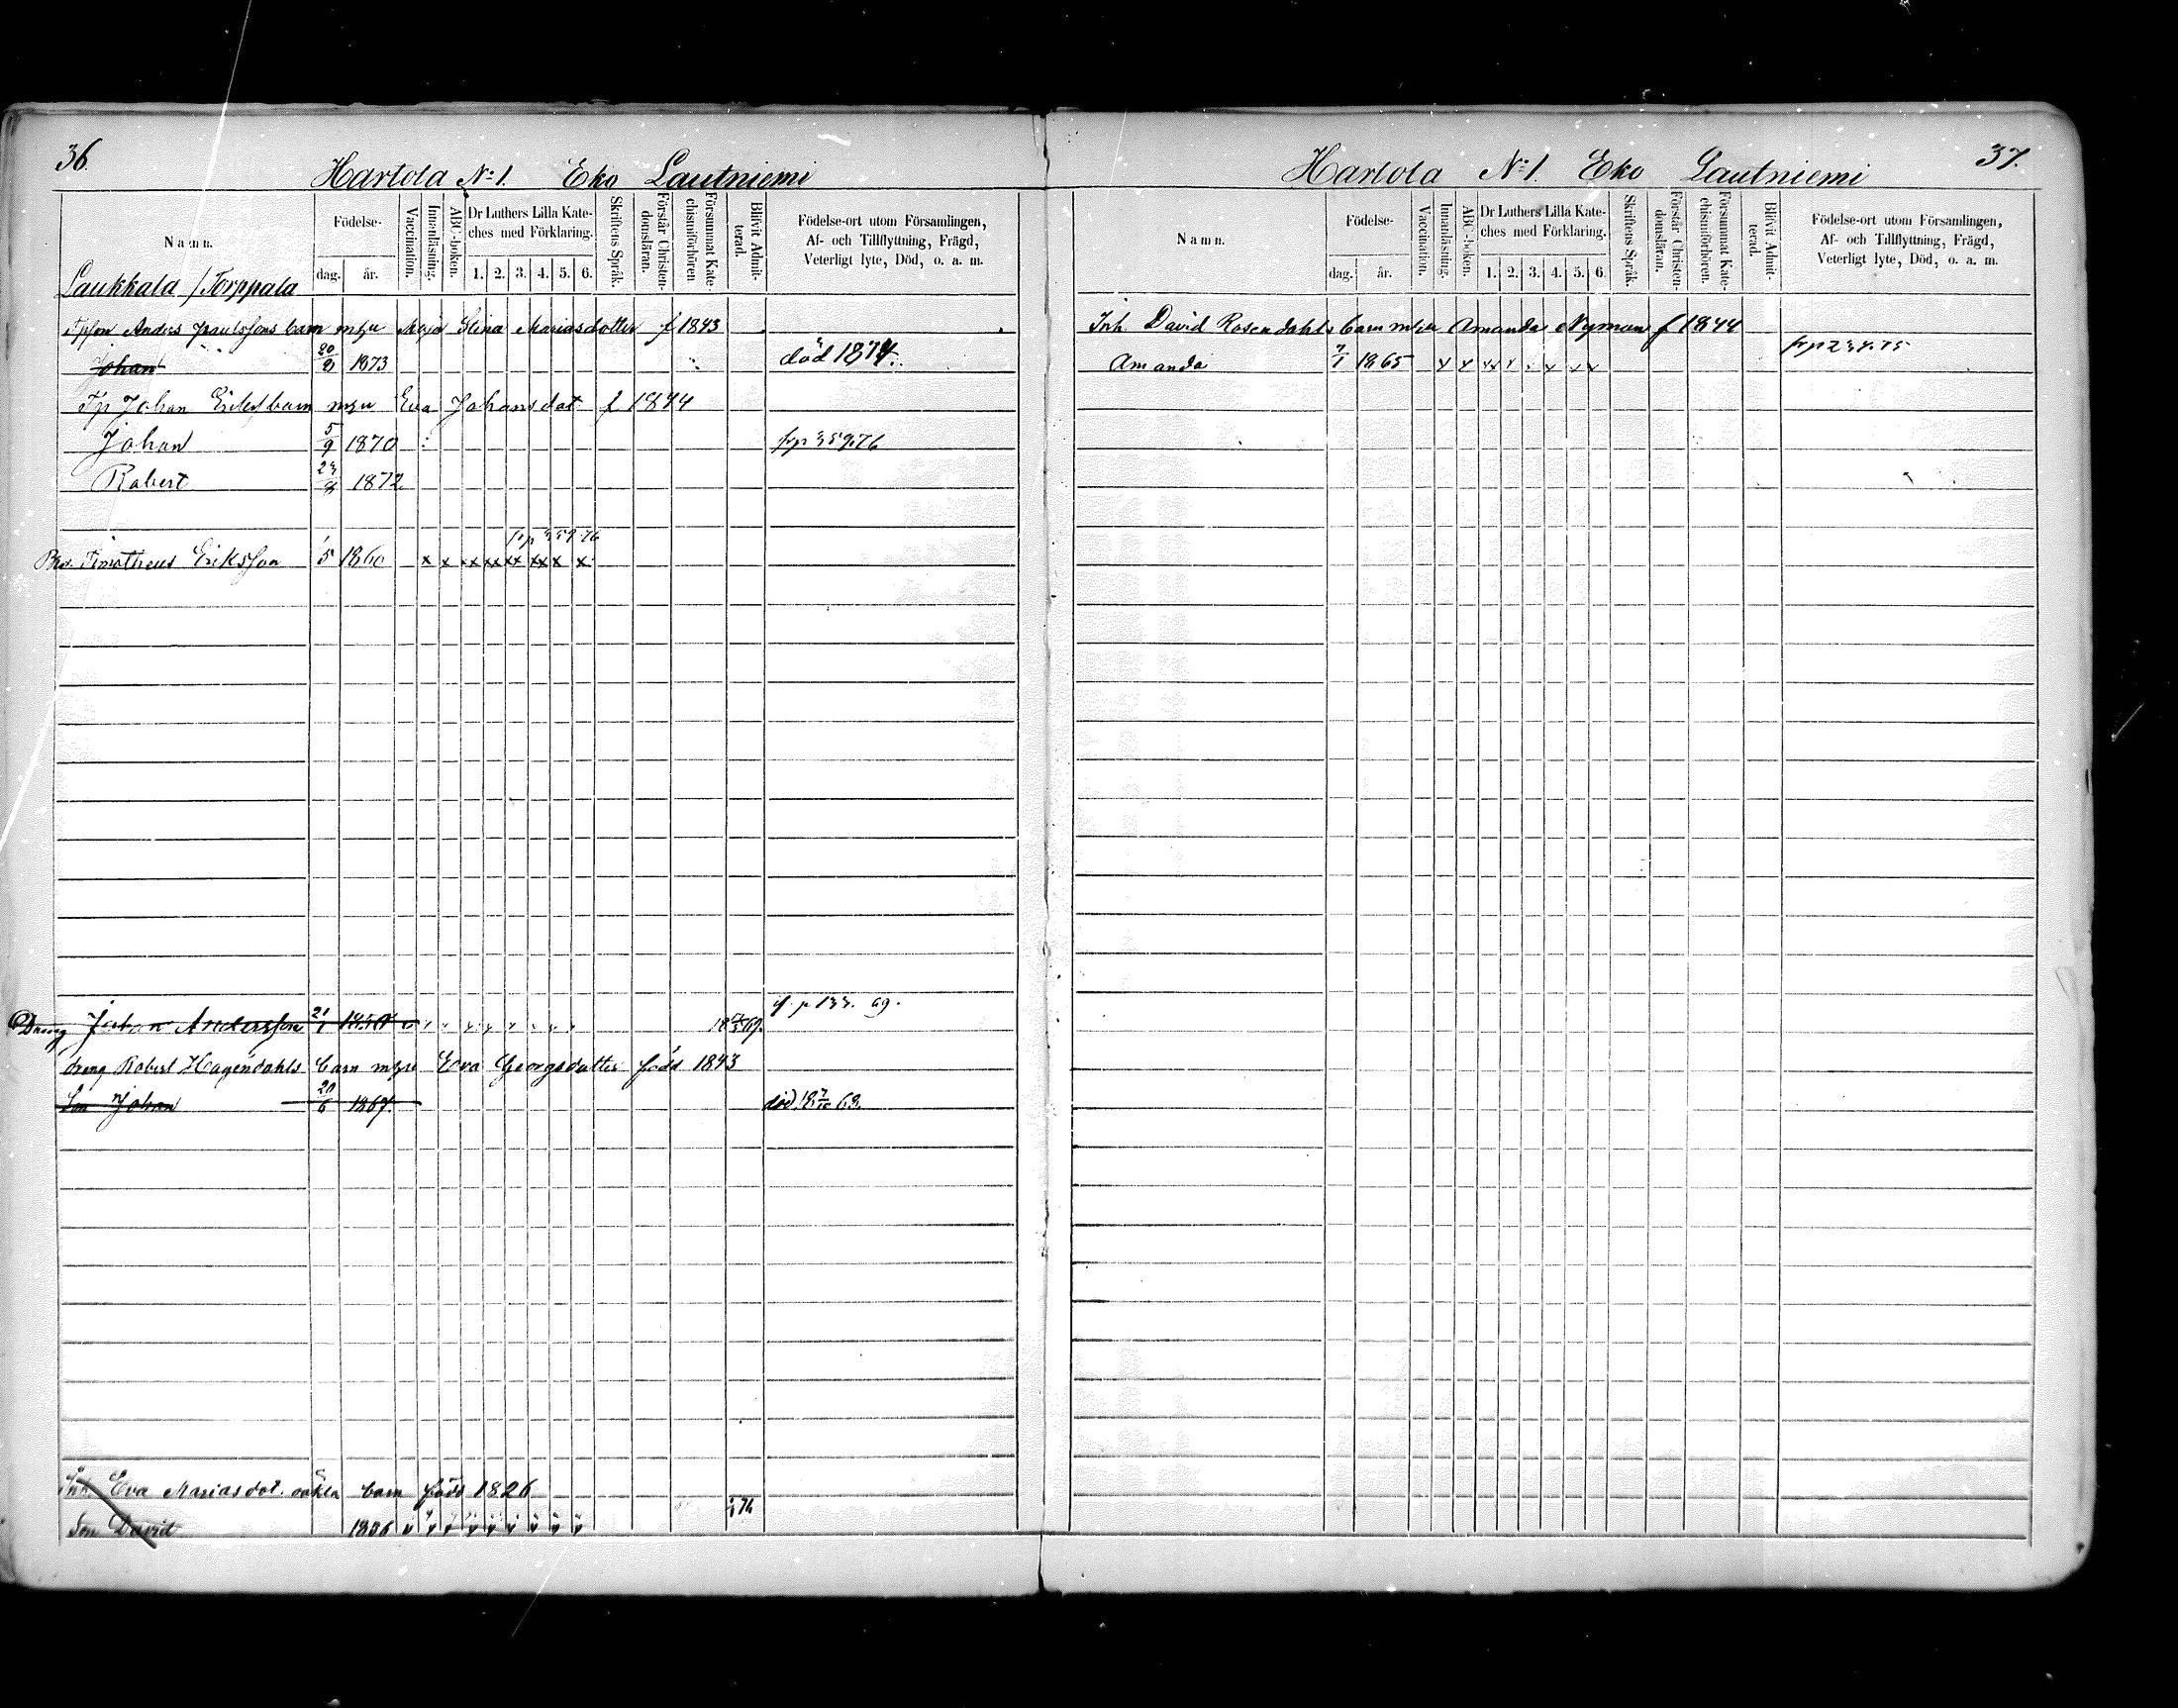 36.
Hartola № 1. Eko Lautniemi
Namn.
Födelse-
dag. år.
Vaccination.
Innanläsning.
ABC-boken.
Dr Luthers Lilla Kate-
ches med Förklaring.
1. 2. 3. 4. 5. 6.
Skriftens Språk.
Förstår Christen-
domsläran.
Försummat Kate-
chismiförhören
Blifvit Admit-
terad.
Födelse-ort utom Församlingen,
Af- och Tillflyttning, Frägd,
Veterligt lyte, Död, o. a. m.
Laukkala / Torppala
Anders Paulssons barn m hu Maja Stina Mariasdotter f 1843
Johan 20/3 1873 död 1874.
Tp Johan barn m hu Eva Johansdot f 1844
Johan 5/9 1870
Robert 1872
Timotheus Eriksson 5 1860 x x xx xx xx xx x x
Dreng Johan Andersson 21/1
dreng Robert Hagendahls barn m hu Eva Georgsdotter född 1843
Son Johan 20/6 1867. död
Inh. Eva Mariasdot. oäkta barn född 1826
Son David
37.
Hartola № 1. Eko Lautniemi
Namn.
Födelse-
dag. år.
Vaccination.
Innanläsning.
ABC-boken.
Dr Luthers Lilla Kate-
ches med Förklaring.
1. 2. 3. 4. 5. 6.
Skriftens Språk.
Förstår Christen-
domsläran.
Försummat Kate-
chismiförhören.
Blifvit Admit-
terad.
Födelse-ort utom Församlingen,
Af- och Tillflyttning, Frägd,
Veterligt lyte, Död, o. a. m.
Inh. David Rosendahls barn m hu Amanda Nyman f 1844
Amanda 7/1 1865